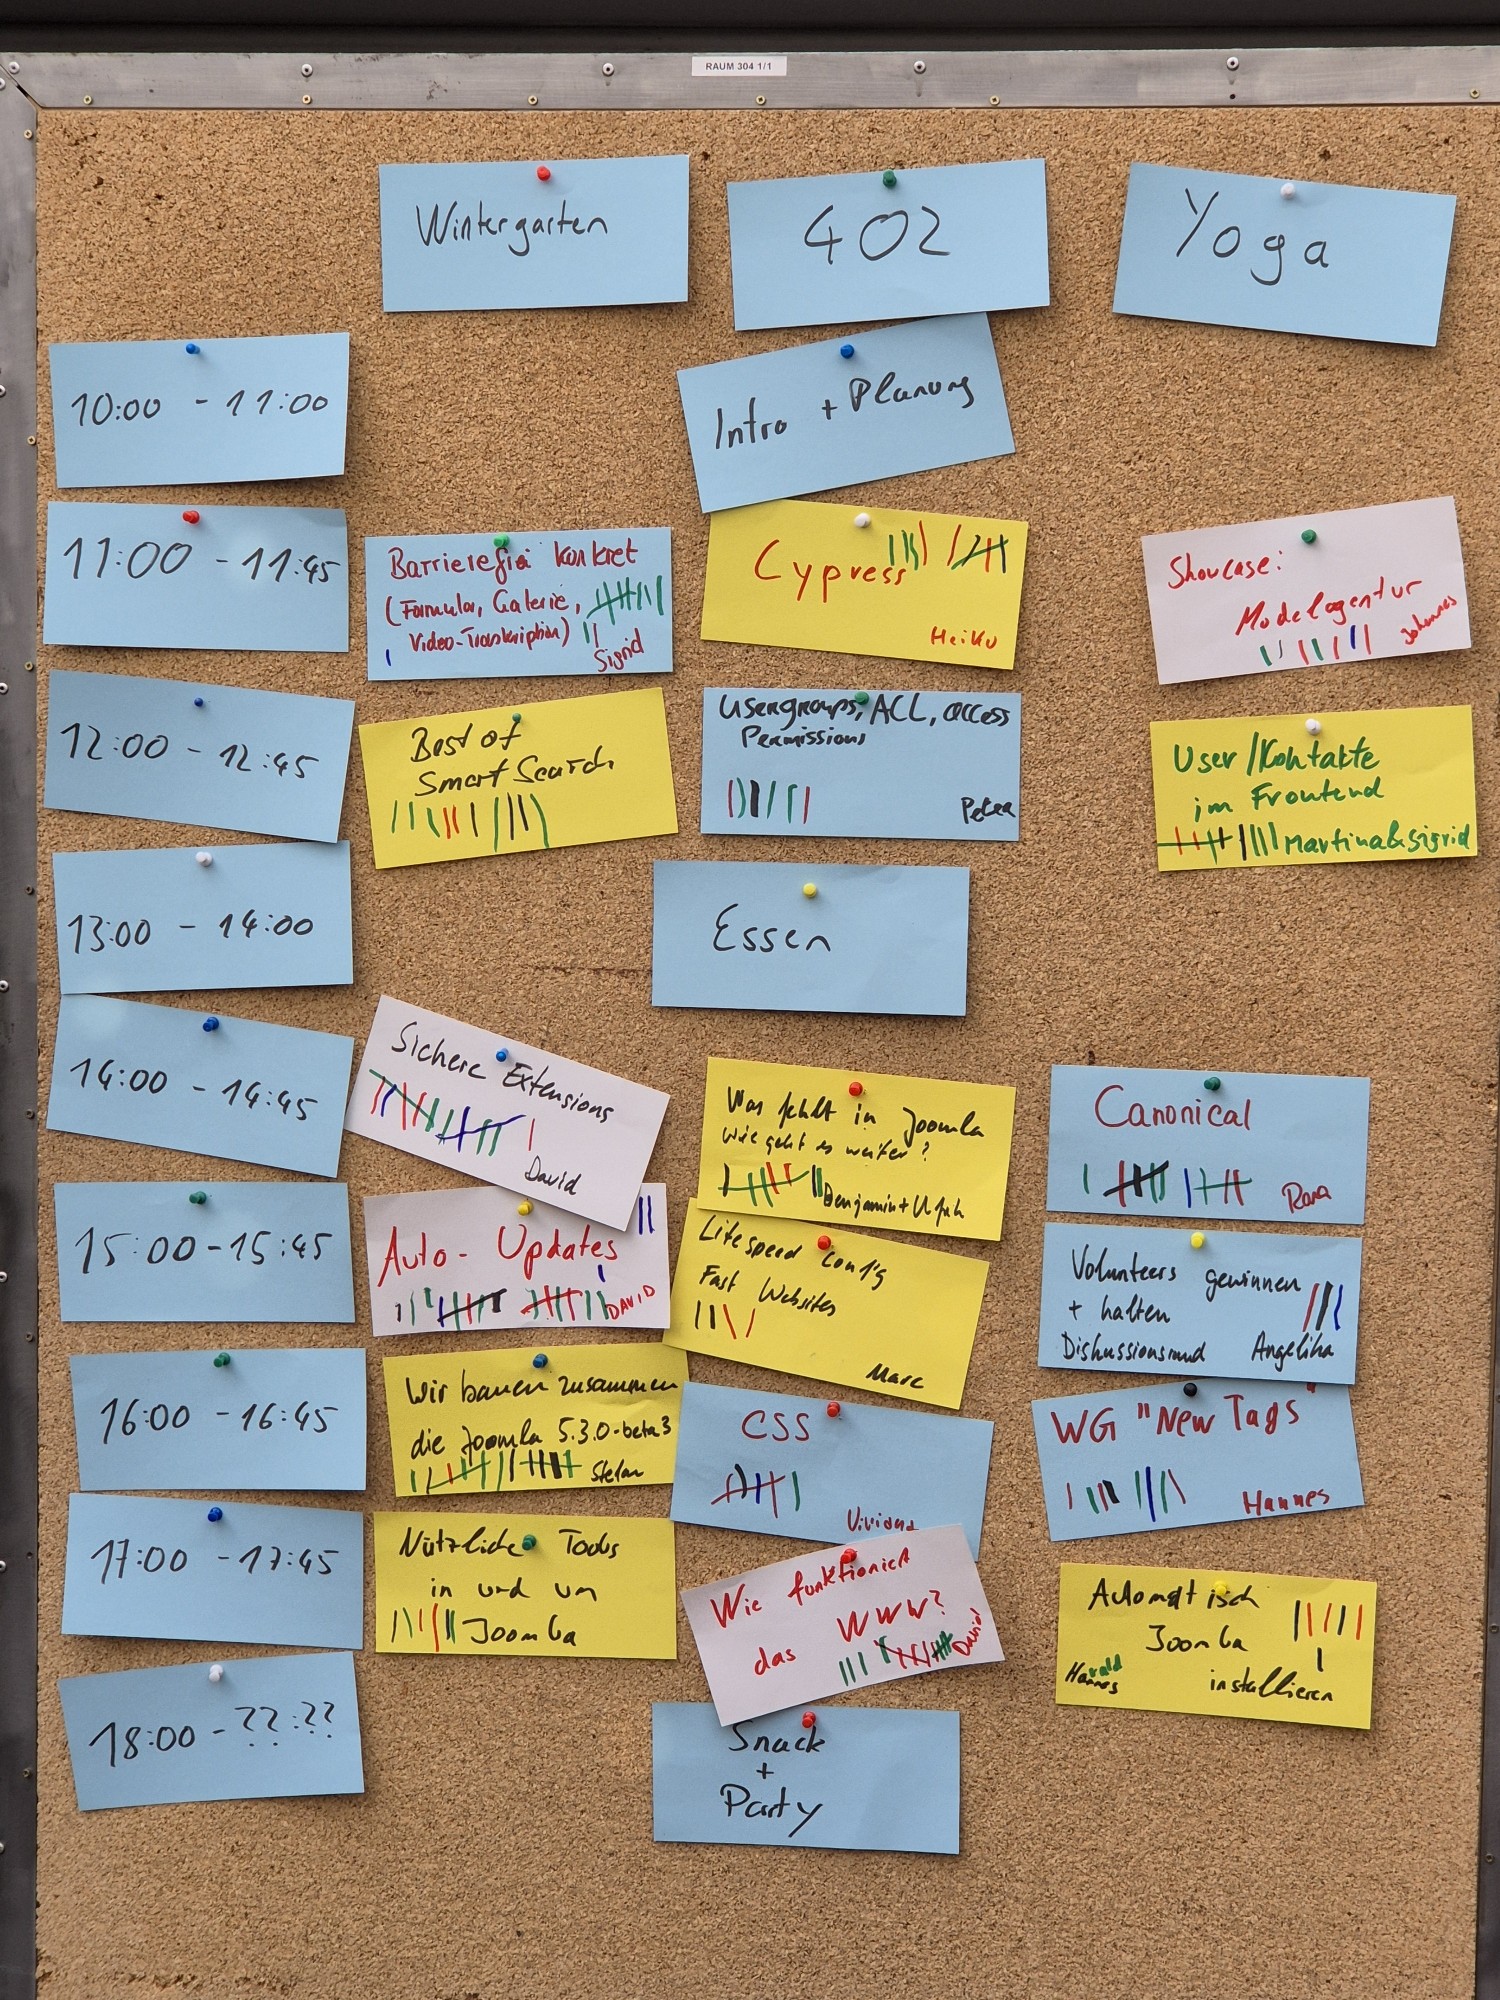 RAUM 304 1/1
Wintergarten
402
Yoga
10:00 - 11:00
Intro + Planung
11:00 - 11:45
Barrierefrei konkret
(Formular, Galerie,
Video-Transkription)
Sigrid
Cypress
Heiko
Showcase:
Modelagentur
Johannes
12:00 - 12:45
Best of
Smart Search
Usergroups, ACL, access
Permissions
Petra
User/Kontakte
im Frontend
Martina&Sigrid
13:00 - 14:00
Essen
14:00 - 14:45
Sichere Extensions
David
Was fehlt in Joomla
wie geht es weiter?
Benjamin+
Canonical
15:00 - 15:45
Auto-Updates
DAVID
Litespeed Config
Fast Websites
Marc
Volunteers gewinnen
+ halten
Diskussionsrund Angelika
16:00 - 16:45
Wir bauen zusammen
die Joomla 5.3.0-beta3
Stefan
CSS
Viviana
WG "New Tags"
Hannes
17:00 - 17:45
Nützliche Tools
in und um
Joomla
Wie funktioniert
das WWW?
David
Automatisch
Joomla
installieren
Harald
Hannes
18:00 - ??:??
Snack
+
Party